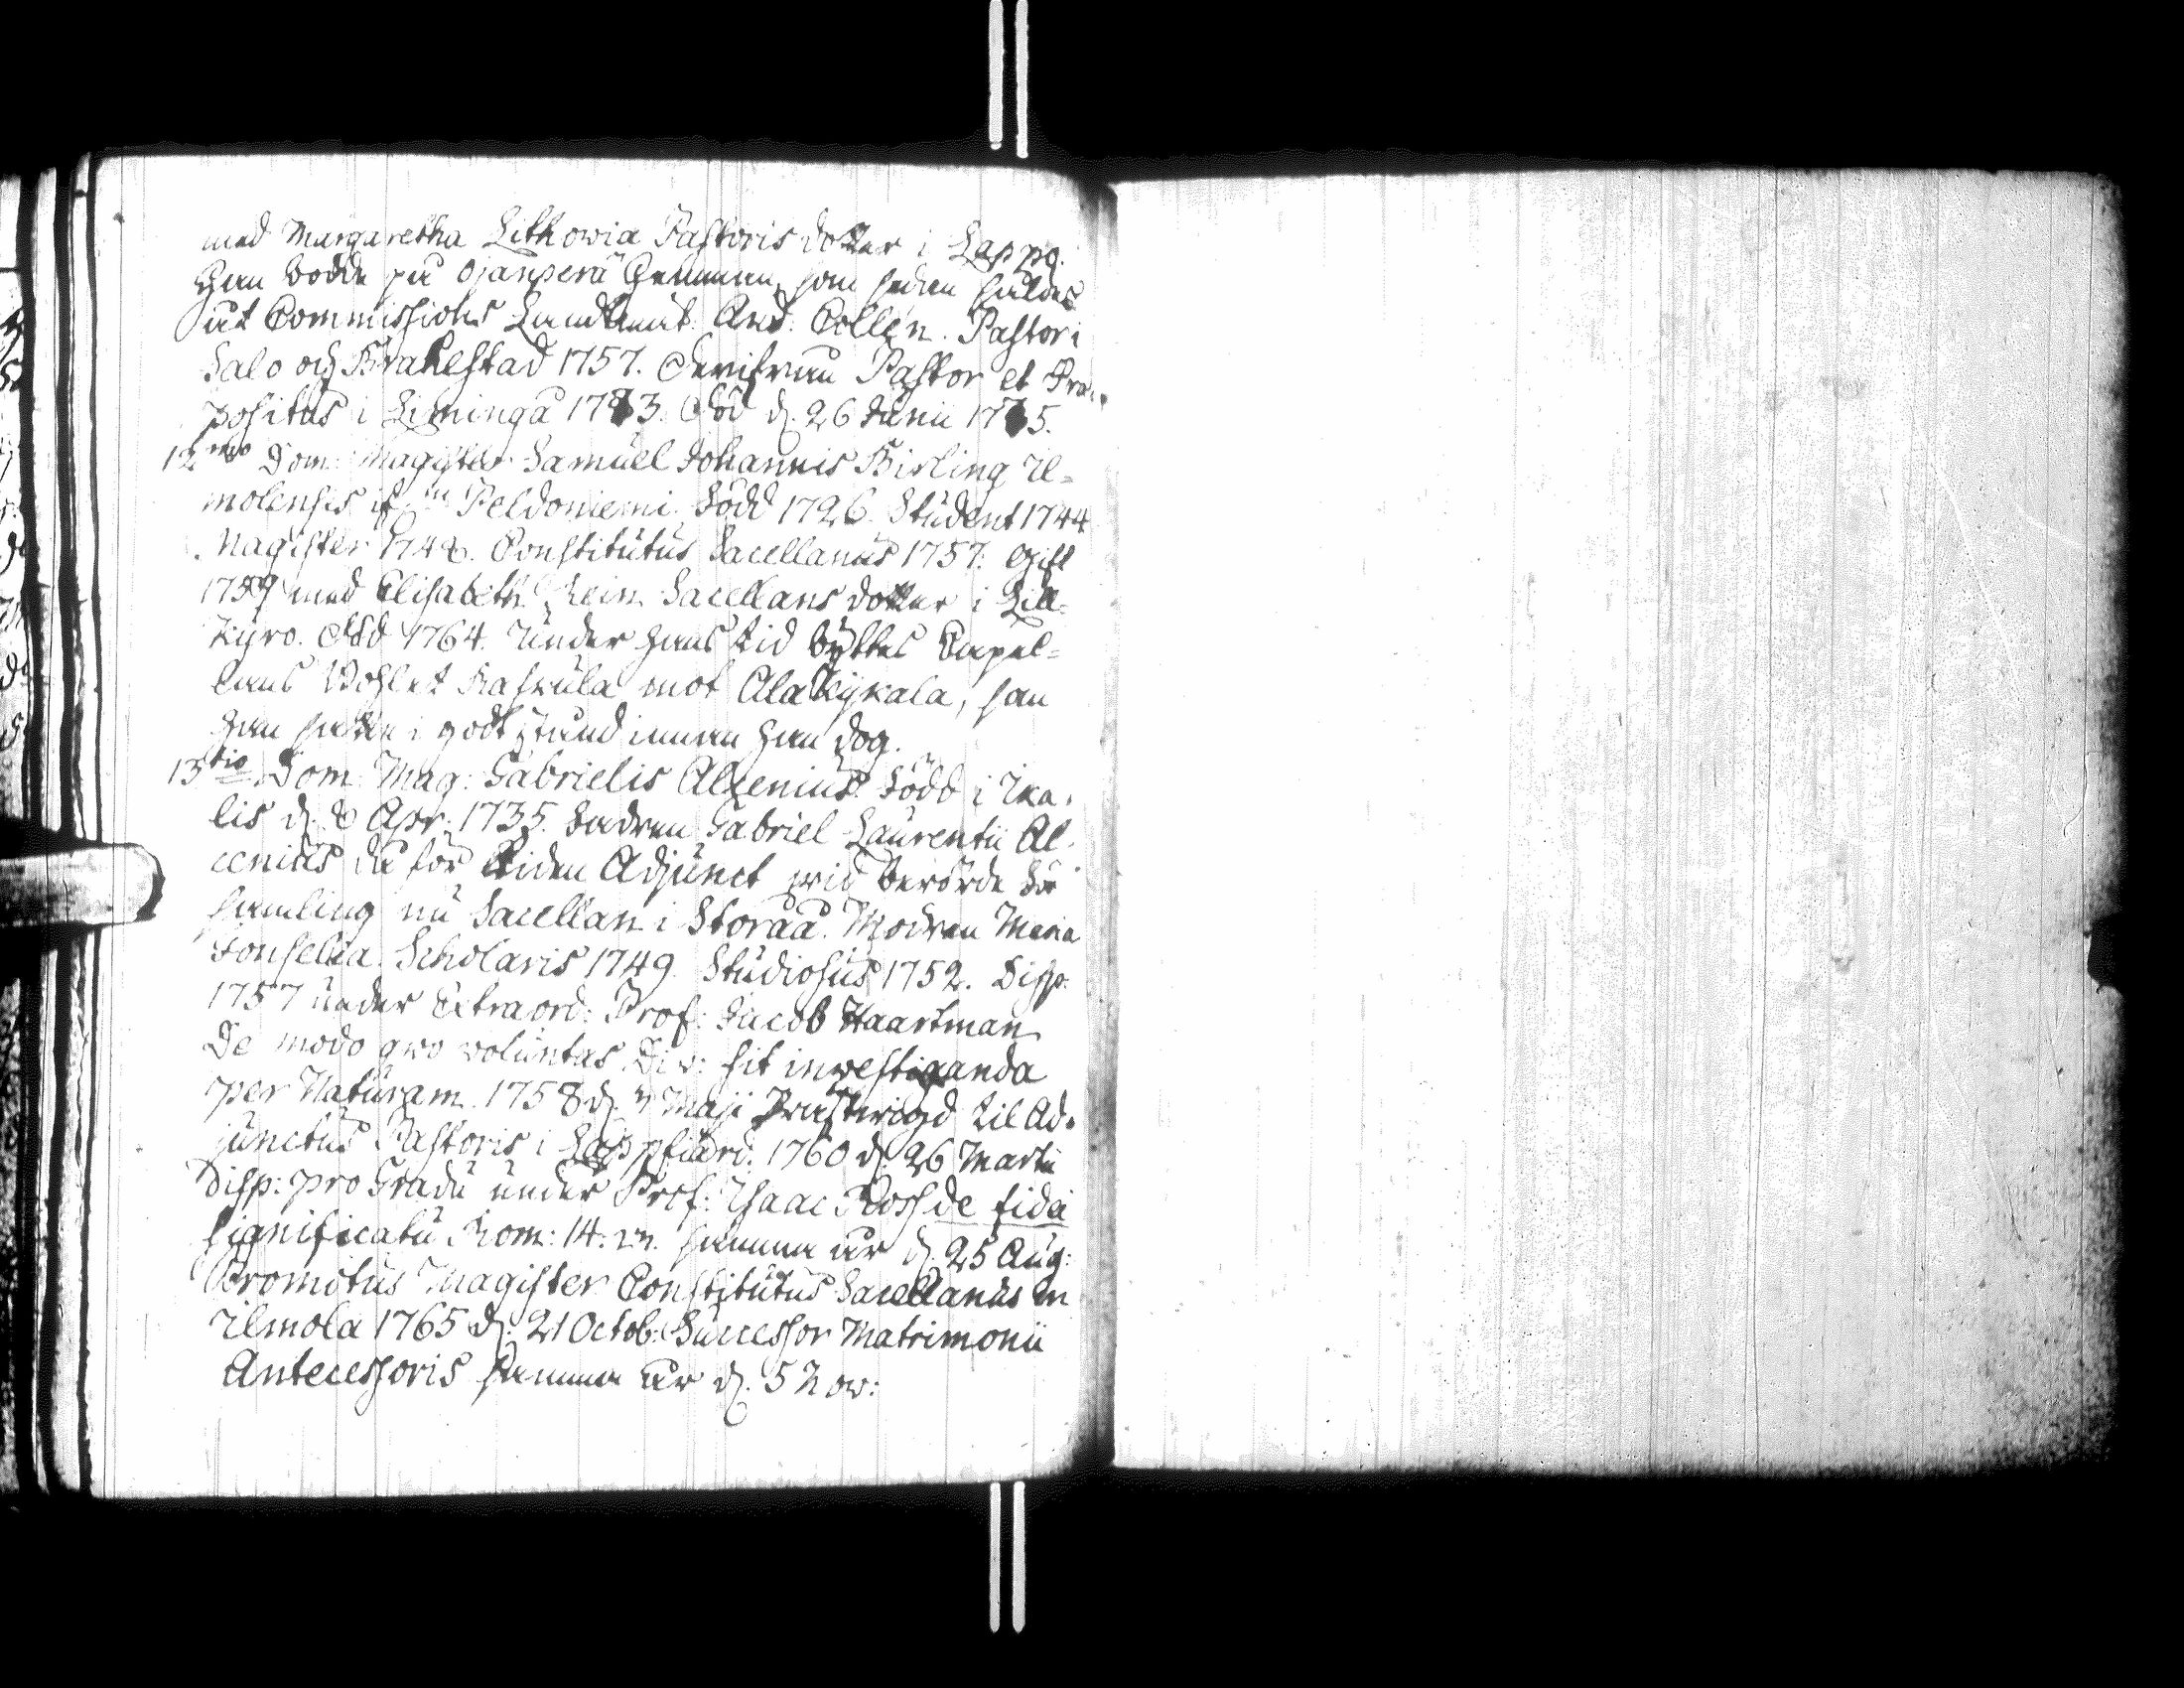 med Margaretha Lithowia Pastoris dotter i Lappo.
Han bodde på Ojanperä Hemman, som sedan såldes
åt Commissions Landtmät: And: Collén. Pastor i
Salo och Brahestad 1757. Pastor et Præ-
positus i Limingå 1783. död d. 26 Junii 1785.
12mo Dom: Magister Samuel Johannis Birling Il-
molensis in Peldoniemi. Född 1726. Student 1744
Magister 1748. Constitutus Sacellanus 1757. Gift
1759 med Elisabeth Rein Sacellans dotter i Lill-
Kyro. död 1764. Under hans tid byttes Capel-
lans Bohlet Raskula mot AlaKykala, som
han satte i godt stånd innan han dog.
13tio Dom: Mag: Gabrielis Alcenius. Född i Ika-
lis d. 8 Apr: 1735. Fadren Gabriel Laurentii Al-
cenius då för tiden Adjunct wid berörde För
samling nu Sacellan i Storåå. Modren Maria
Fonselia. Scholaris 1749. Studiosus 1752. Disp:
1757 under Extraord: Prof: Jacob Haartman
De modo qvo voluntas Div: sit investiganda
per Naturam. 1758 d. Maji Prästwigd til Ad-
junctus Pastoris i Lappfiärd. 1760 d. 26 Martii
Disp: pro Gradu under Prof: Isaac Ross de fidei
significatu Rom: 14. samma år d. 25 Aug:
Promotus Magister Constitutus Sacellanus in
Ilmola 1765 d. 21 Octob: Successor Matrimonii
Antecessoris samma år d. 5 Nov: